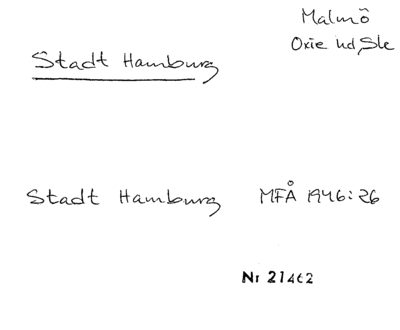 Malmö
Oxie hd, Sk
Stadt Hamburg
Stadt Hamburg MFÅ 1946:26
Nr 21462